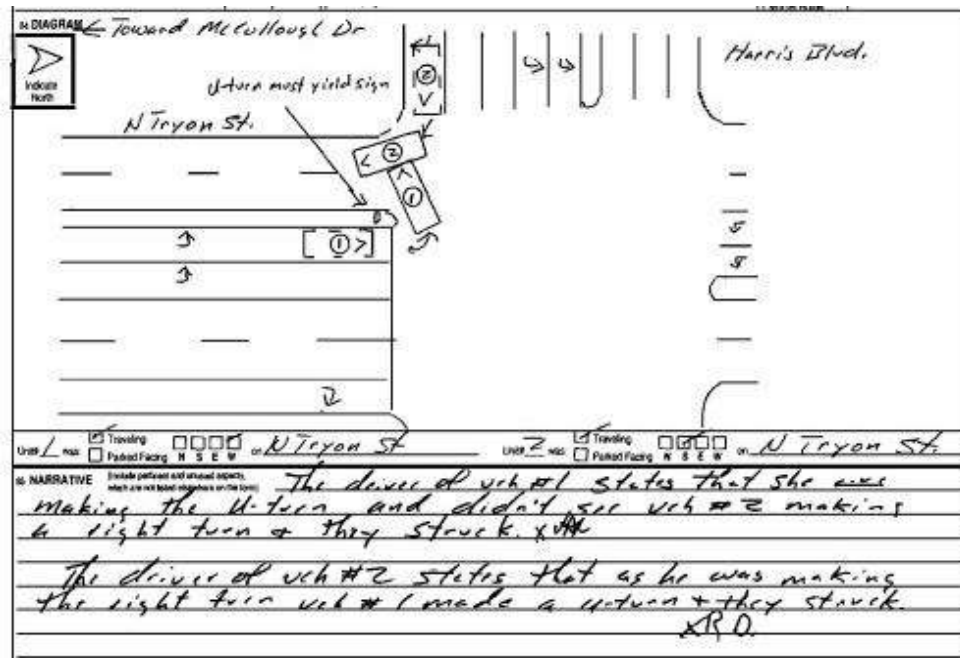 84 DIAGRAM ← Toward McCullough Dr
Indicate
North
Harris Blvd.
U-turn must yield sign
N Tryon St.
2
2
1
1
Unit 1 was Traveling Parked Facing N S E W on N Tryon St
Unit 2 was Traveling Parked Facing N S E W on N Tryon St.
NARRATIVE The driver of veh #1 states that she was
making the U-turn and didn't see veh #2 making
a right turn & they struck.
The driver of veh #2 states that as he was making
the right turn veh #1 made a u-turn + they struck.